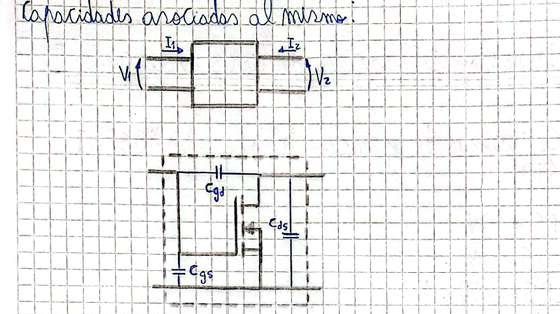 Capacidades asociadas al mismo:
I1 I2
V1 V2
Cgd
Cds
Cgs